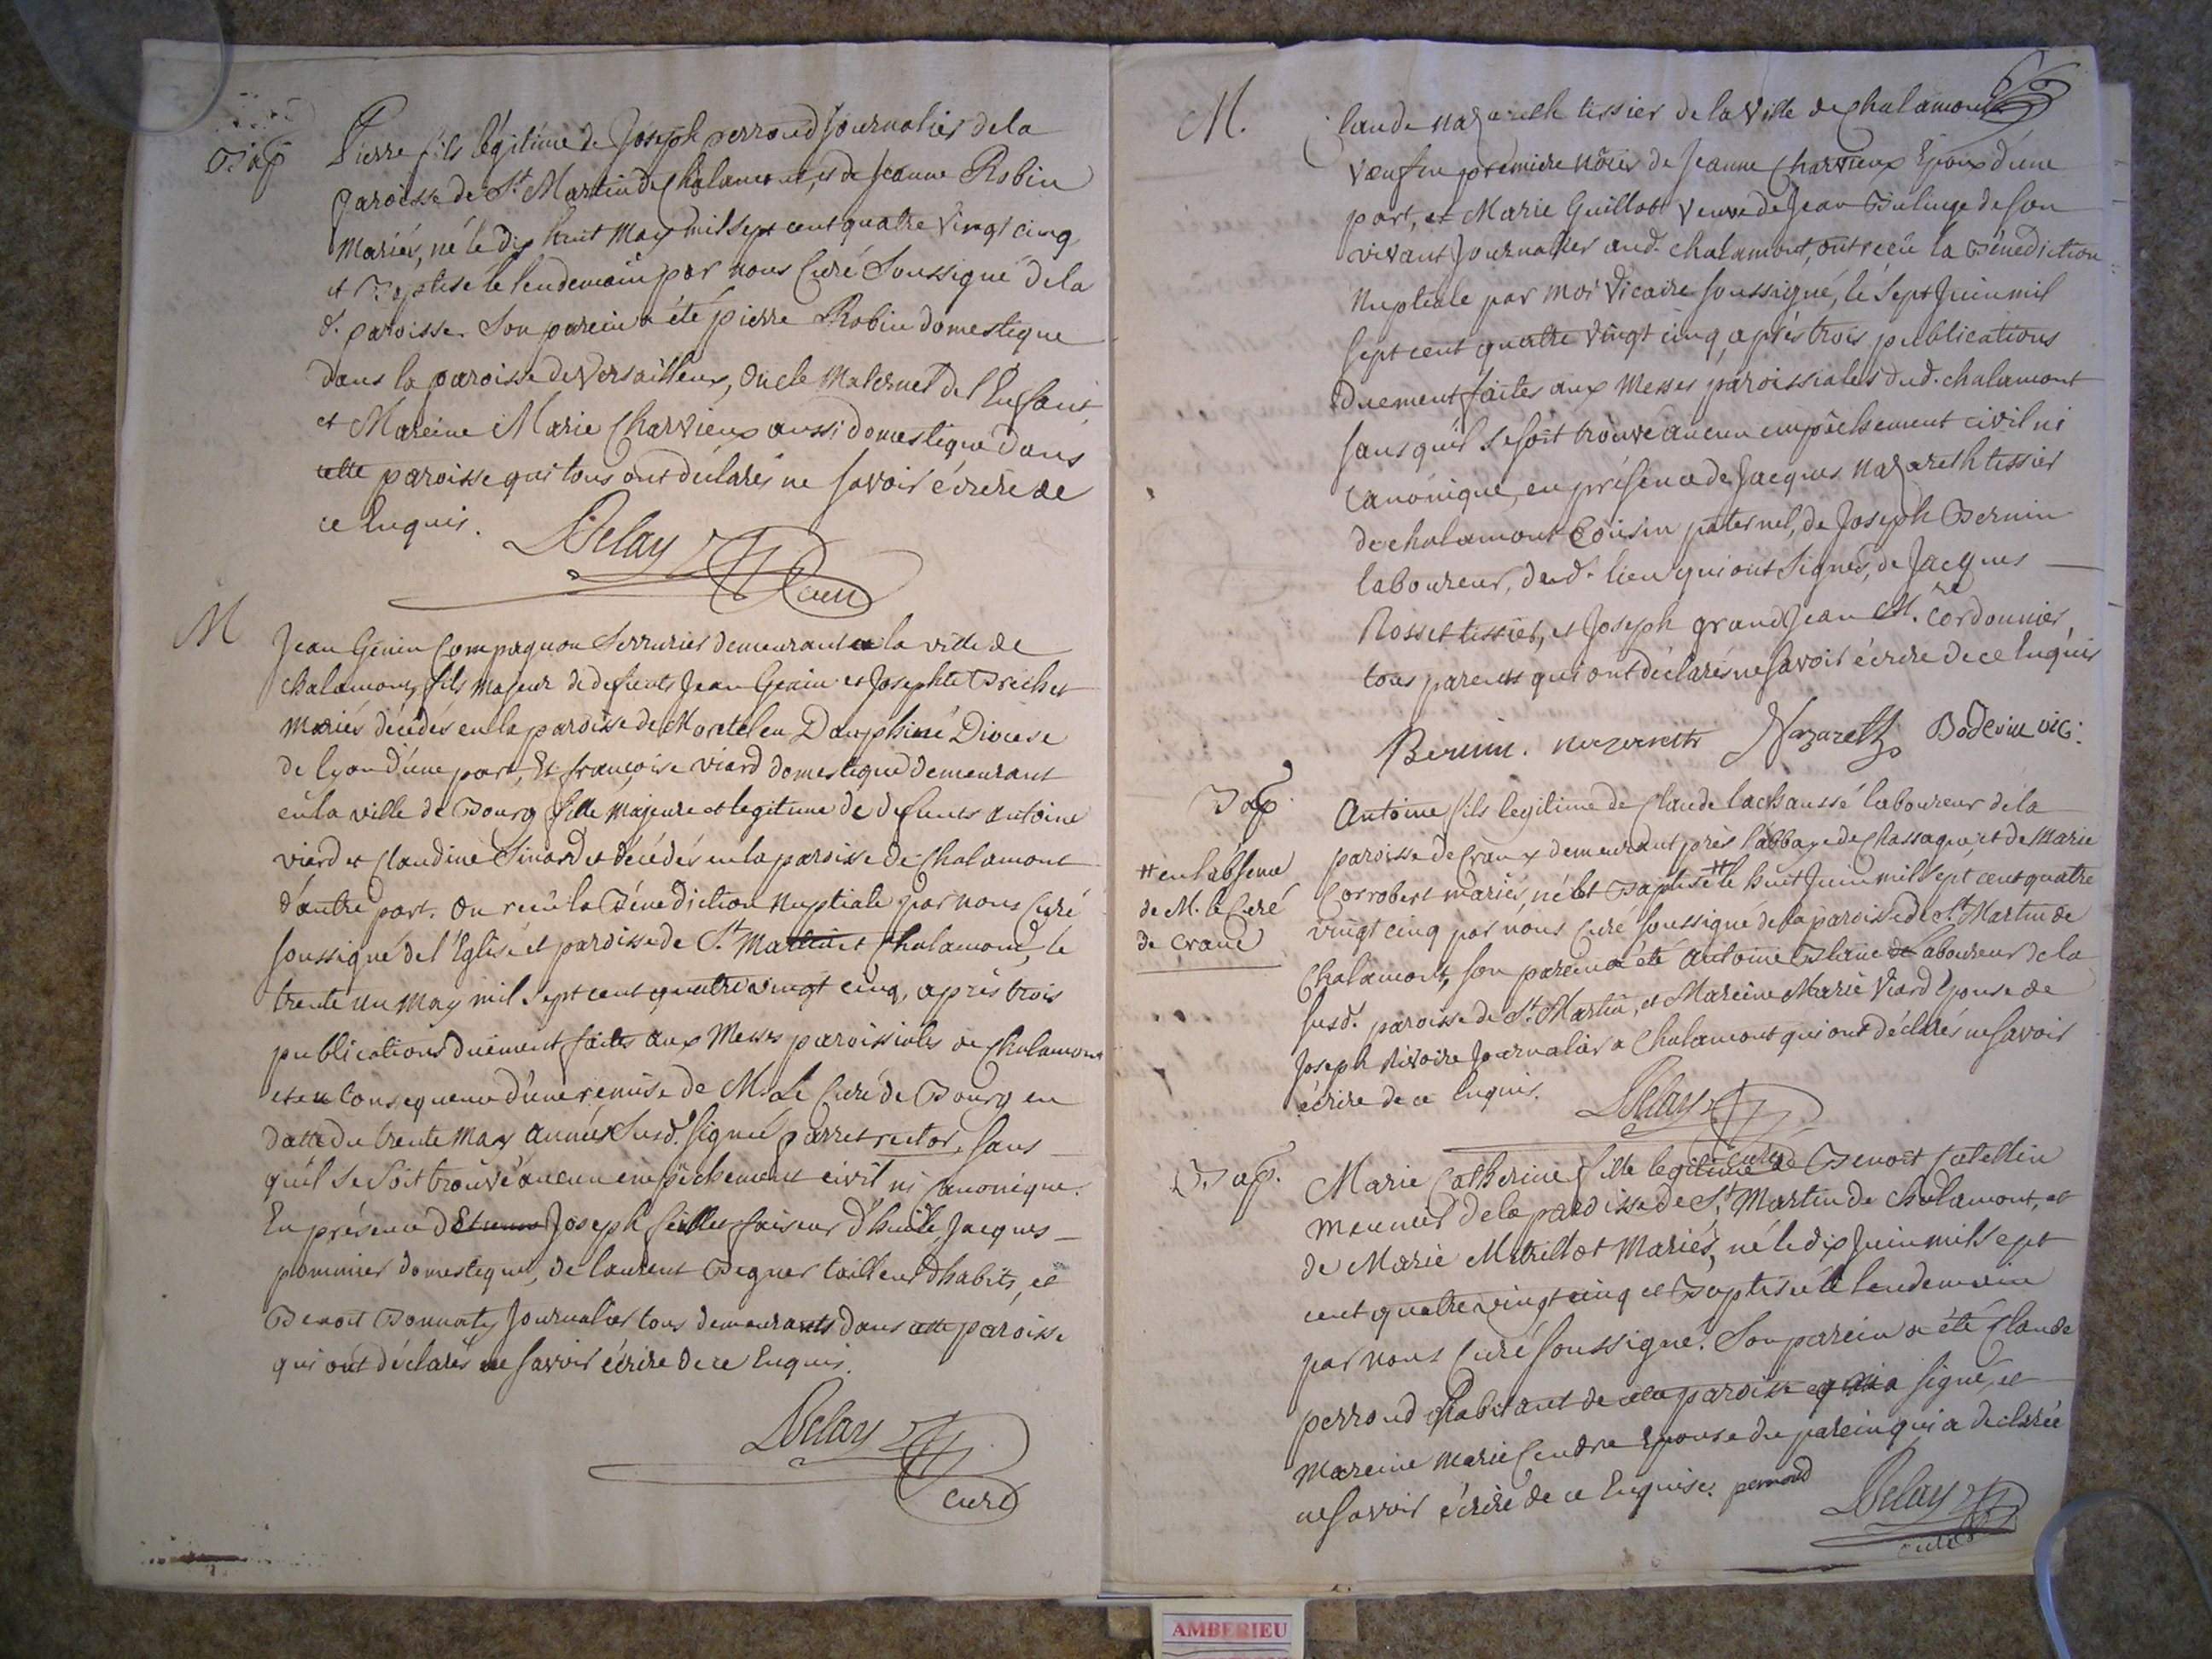 Bap
Pierre fils légitime de Joseph perroud Journalier de la
paroisse de St. Martin de Chalamont, et de Jeanne Robin
Mariés, né le dix huit May mil sept cent quatre vingt cinq
et Baptisé le lendemain par nous Curé Soussigné de la
d. paroisse. Son parein a été pierre Robin domestique
dans la paroisse de Versailleux, Oncle Maternel de l'Enfant
et Mareine Marie Charvieux aussi domestique dans
cette paroisse qui tous ont déclarés ne savoir écrire de
ce Enquis.
Delay
Curé
M
Jean Genin Compagnon Serrurier demeurant en la ville de
Chalamont, fils majeur de defunts Jean Genin et Josephte
Mariés décédés en la paroisse de Moretel en Dauphiné Diocese
de lyon d'une part, Et françoise viard domestique demeurant
en la ville de Bourg fille majeure et legitime de defunts antoine
viard et Claudine Sinardet décédés en la paroisse de Chalamont
d'autre part. On reçû la Bénédiction Nuptiale par nous Curé
soussigné de l'Eglise et paroisse de St. Martin et Chalamont, le
trente un may mil sept cent quatre vingt cinq, après trois
publications duement faites aux Messes paroissiales de Chalamont
et en Consequence d'une remise de M. Le Curé de Bourg en
datte du trente May année Susd. Signée parret rector, sans
qu'il se soit trouvé aucun empêchement civil ni Canonique.
En présence d Joseph faiseur d'huile, Jacques
pommier domestique, de laurent Begner tailleur d'habits, et
Benoit Bonnaty Journalier tous demeurants dans cette paroisse
qui ont déclarés ne savoir écrire de ce Enquis.
Delay
curé
M.
Claude Nazareth tissier de la Ville de Chalamont
Vœuf en première Nôces de Jeanne Charvieux Epoux d'une
part, et Marie Guillot Veuve de Jean Bulinge de son
vivant Journalier aud. chalamont, ont reçû la Bénédiction
Nuptiale par moi Vicaire soussigné, le Sept Juin mil
Sept cent quatre vingt cinq, après trois publications
duement faites aux Messes paroissiales dud. chalamont
sans qu'il se soit trouvé aucun empêchement civil ni
Canonique, en présence de Jacques Nazareth tissier
de chalamont Cousin paternel, de Joseph Bernin
laboureur, dud. lieu qui ont signés, de Jacques
Rosset tissier, et Joseph grand Jean M. Cordonnier,
tous parents qui ont déclarés ne savoir écrire de ce Enquis
Bernin. Nazareth Nazareth Boderine vic:
Bap.
Antoine fils legitime de Claude lachaussé laboureur de la
paroisse de Cranx demeurant près l'abbaye de Chassagne, et de Marie
# en l'absence
de M. le Curé
de Crane
Corrobert mariés, né et Baptisé # le huit Juin mil sept cent quatre
vingt cinq par nous Curé soussigné de la paroisse de St. Martin de
Chalamont, son parein a été Antoine Blanc laboureur de la
susd. paroisse de St. Martin, et Mareine Marie Viard Epouse de
Joseph Rivoire Journalier a Chalamont qui ont déclarés ne savoir
écrire de ce Enquis.
Delay
Curé
Bap.
Marie Catherine fille legitime de Benoît Catellin
Meunier de la paroisse de St. Martin de Chalamont, et
de Marie Mariés, né le dix Juin mil sept
cent quatre vingt cinq et Baptisée le lendemain
par nous Curé soussigné. Son parein a été Claude
perroud habitant de cette paroisse qui a signé, et
Mareine Marie Cendre Epouse du parein qui a déclarée
ne savoir écrire de ce Enquise. perroud
Delay
curé
AMBERIEU